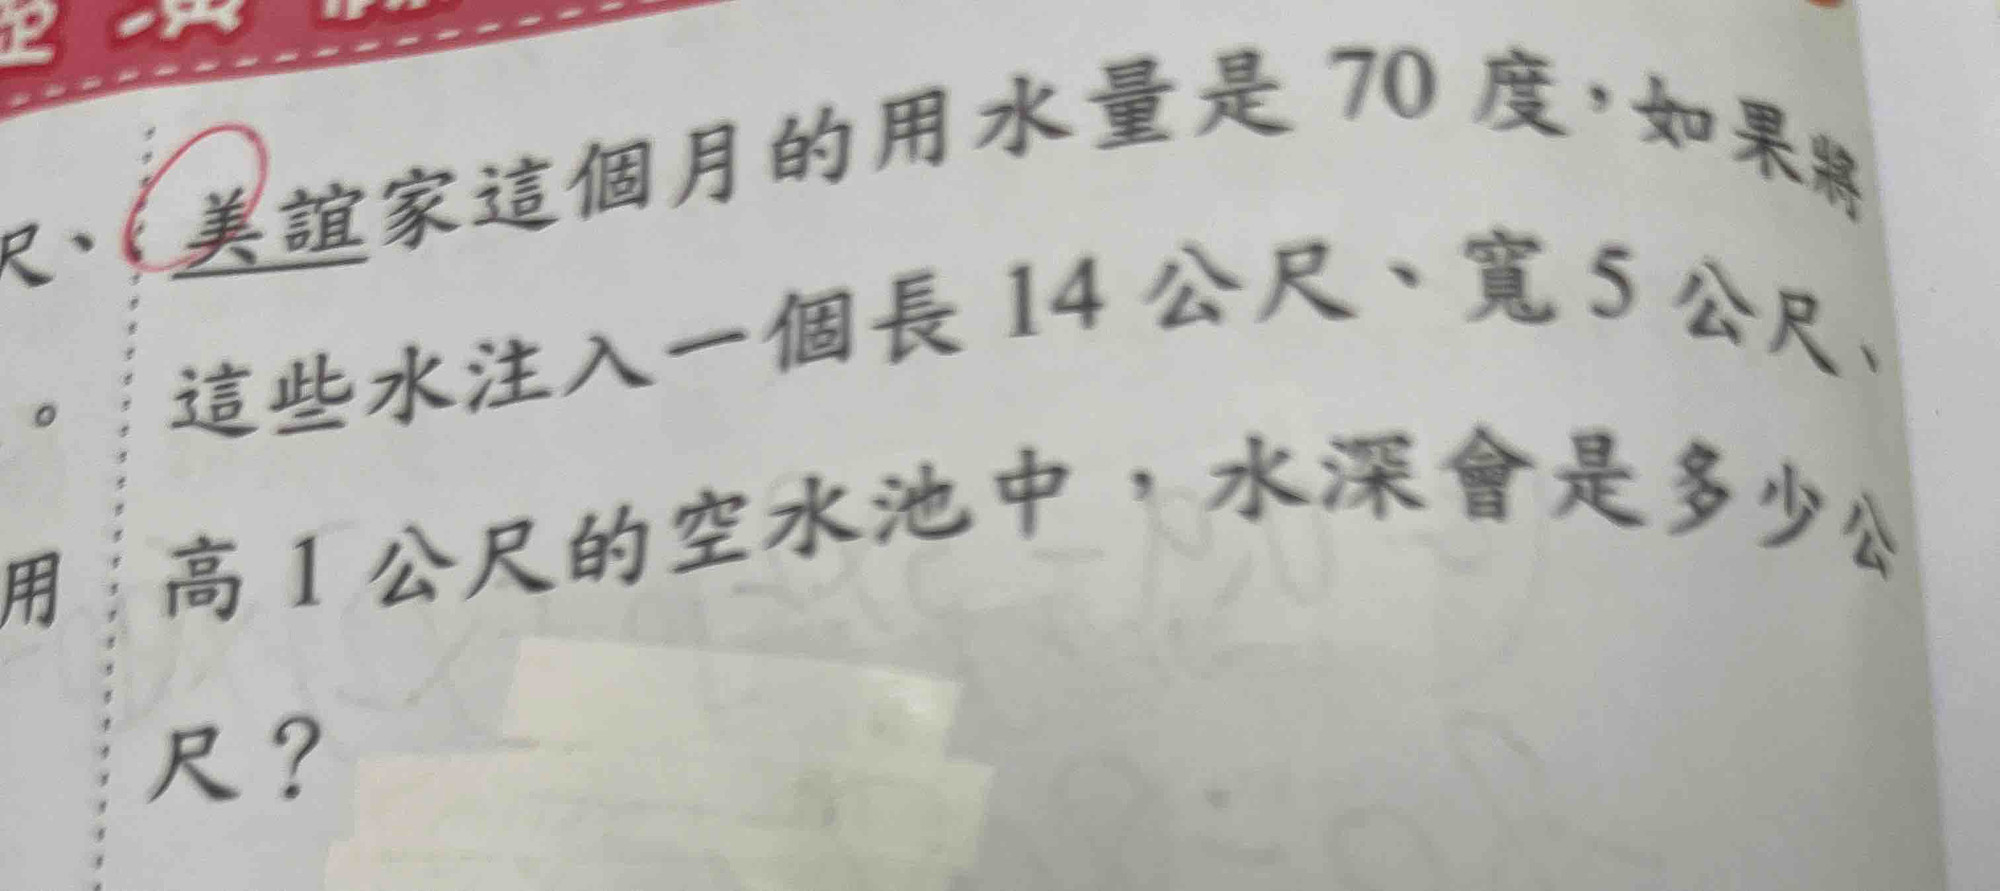 美誼家這個月的用水量是 70 度，如果將
尺、
這些水注入一個長 14 公尺、寬 5 公尺、
。
高 1 公尺的空水池中，水深會是多少公
用
尺？